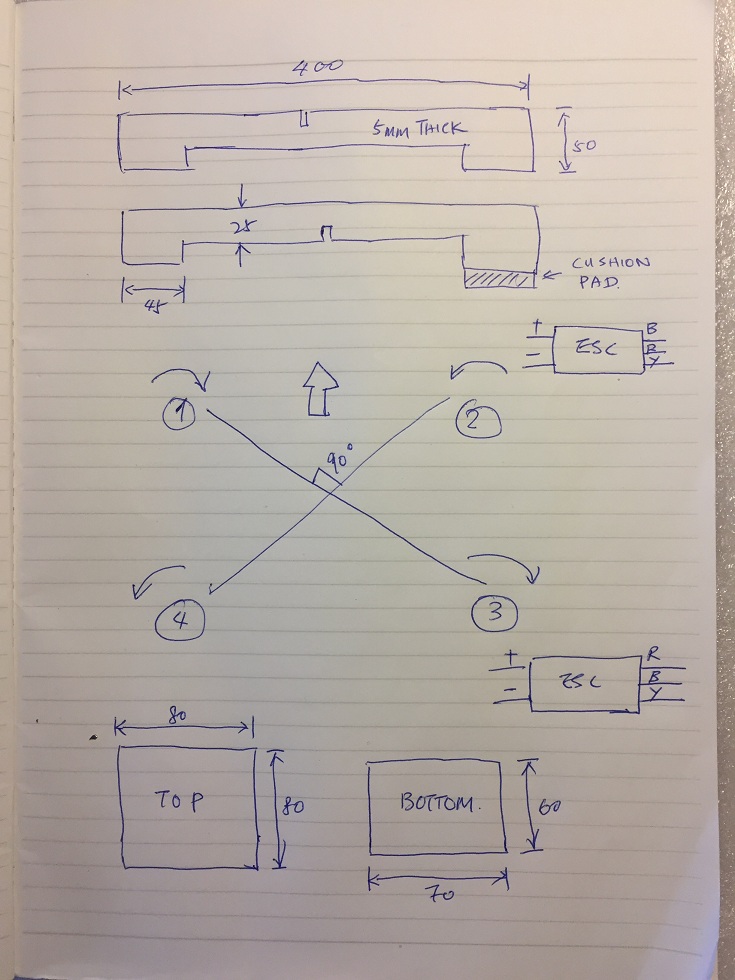 400
5MM THICK
50
25
45
CUSHION
PAD.
+
-
ESC
B
R
Y
1
2
90°
4
3
+
-
ESC
R
B
Y
80
TOP
80
BOTTOM.
60
70